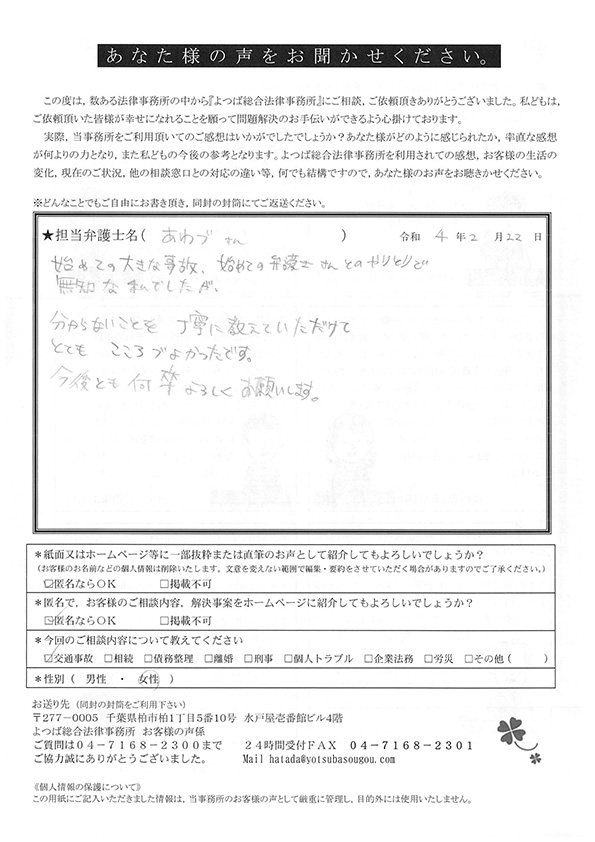 あなた様の声をお聞かせください。
この度は，数ある法律事務所の中から『よつば総合法律事務所』にご相談，ご依頼頂きありがとうございました。私どもは，
ご依頼頂いた皆様が幸せになれることを願って問題解決のお手伝いができるよう心掛けております。
実際，当事務所をご利用頂いてのご感想はいかがでしたでしょうか？あなた様がどのように感じられたか，率直な感想
が何よりの力となり，また私どもの今後の参考となります。よつば総合法律事務所を利用されての感想，お客様の生活の
変化，現在のご状況，他の相談窓口との対応の違い等，何でも結構ですので，あなた様のお声をお聴きかせください。
※どんなことでもご自由にお書き頂き，同封の封筒にてご返送ください。
★担当弁護士名（ あわづ さん ） 令和 4 年 2 月 22 日
始めての大きな事故、始めての弁護士さんとのやりとりで
無知な私でしたが、
分からないことを 丁寧に教えていただけて
とても こころづよかったです。
今後とも何卒よろしくお願いします。
＊紙面又はホームページ等に一部抜粋または直筆のお声として紹介してもよろしいでしょうか？
（お客様のお名前などの個人情報は削除いたします。文意を変えない範囲で編集・要約をさせていただく場合がありますのでご了承ください。）
☑匿名ならＯＫ □掲載不可
＊匿名で，お客様のご相談内容，解決事案をホームページに紹介してもよろしいでしょうか？
☑匿名ならＯＫ □掲載不可
＊今回のご相談内容について教えてください
☑交通事故 □相続 □債務整理 □離婚 □刑事 □個人トラブル □企業法務 □労災 □その他（ ）
＊性別（ 男性 ・ 女性 ）
お送り先（同封の封筒をご利用下さい）
〒277－0005 千葉県柏市柏1丁目5番10号 水戸屋壱番館ビル4階
よつば総合法律事務所 お客様の声係
ご質問は０４－７１６８－２３００まで ２４時間受付ＦＡＸ ０４－７１６８－２３０１
ご協力誠にありがとうございました。 Mail hatada@yotsubasougou.com
《個人情報の保護について》
この用紙にご記入いただきました情報は，当事務所のお客様の声として厳重に管理し，目的外には使用いたしません。